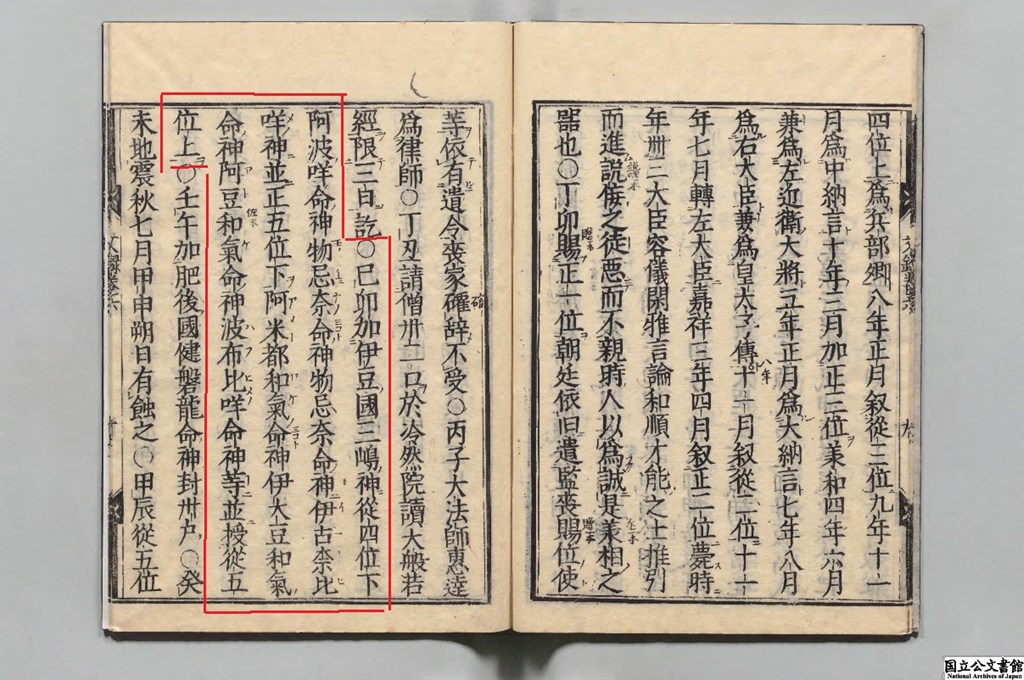 四位上爲兵部卿八年正月叙從三位九年十一
月爲中納言十年三月加正三位美和四年六月
兼爲左近衛大將五年正月爲大納言七年八月
爲右大臣兼爲皇太子傅十一月叙從二位十一
年七月轉左大臣嘉祥三年四月叙正二位薨時
年卅三大臣容儀閑雅言論和順才能之士推引
而進説侮之徒悪而不親時人以爲誠是美相之
器也〇丁卯賜正一位朝廷依旧遣監喪賜位使
等依有遺令喪家確辞不受〇丙子大法師惠逹
爲律師〇丁丑請僧卅二口於冷然院讀大般若
經限三日訖〇己卯加伊豆國三嶋神從四位下
阿波咩命神物忌奈命神物忌奈命神伊古柰比
咩神並正五位下阿米都和氣命神伊大豆和氣
命神阿豆和氣命神波布比咩命神等並授從五
位上〇壬午加肥後國健磐龍命神封卅戸〇癸
未地震秋七月甲申朔日有蝕之〇甲辰從五位
国立公文書館
National Archives of Japan